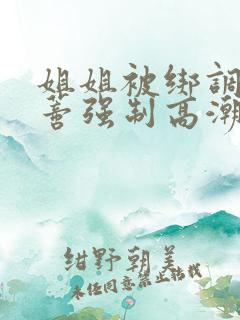 姐姐被绑調
蕾强制高潮
绀野朝美
未经同意禁止转载